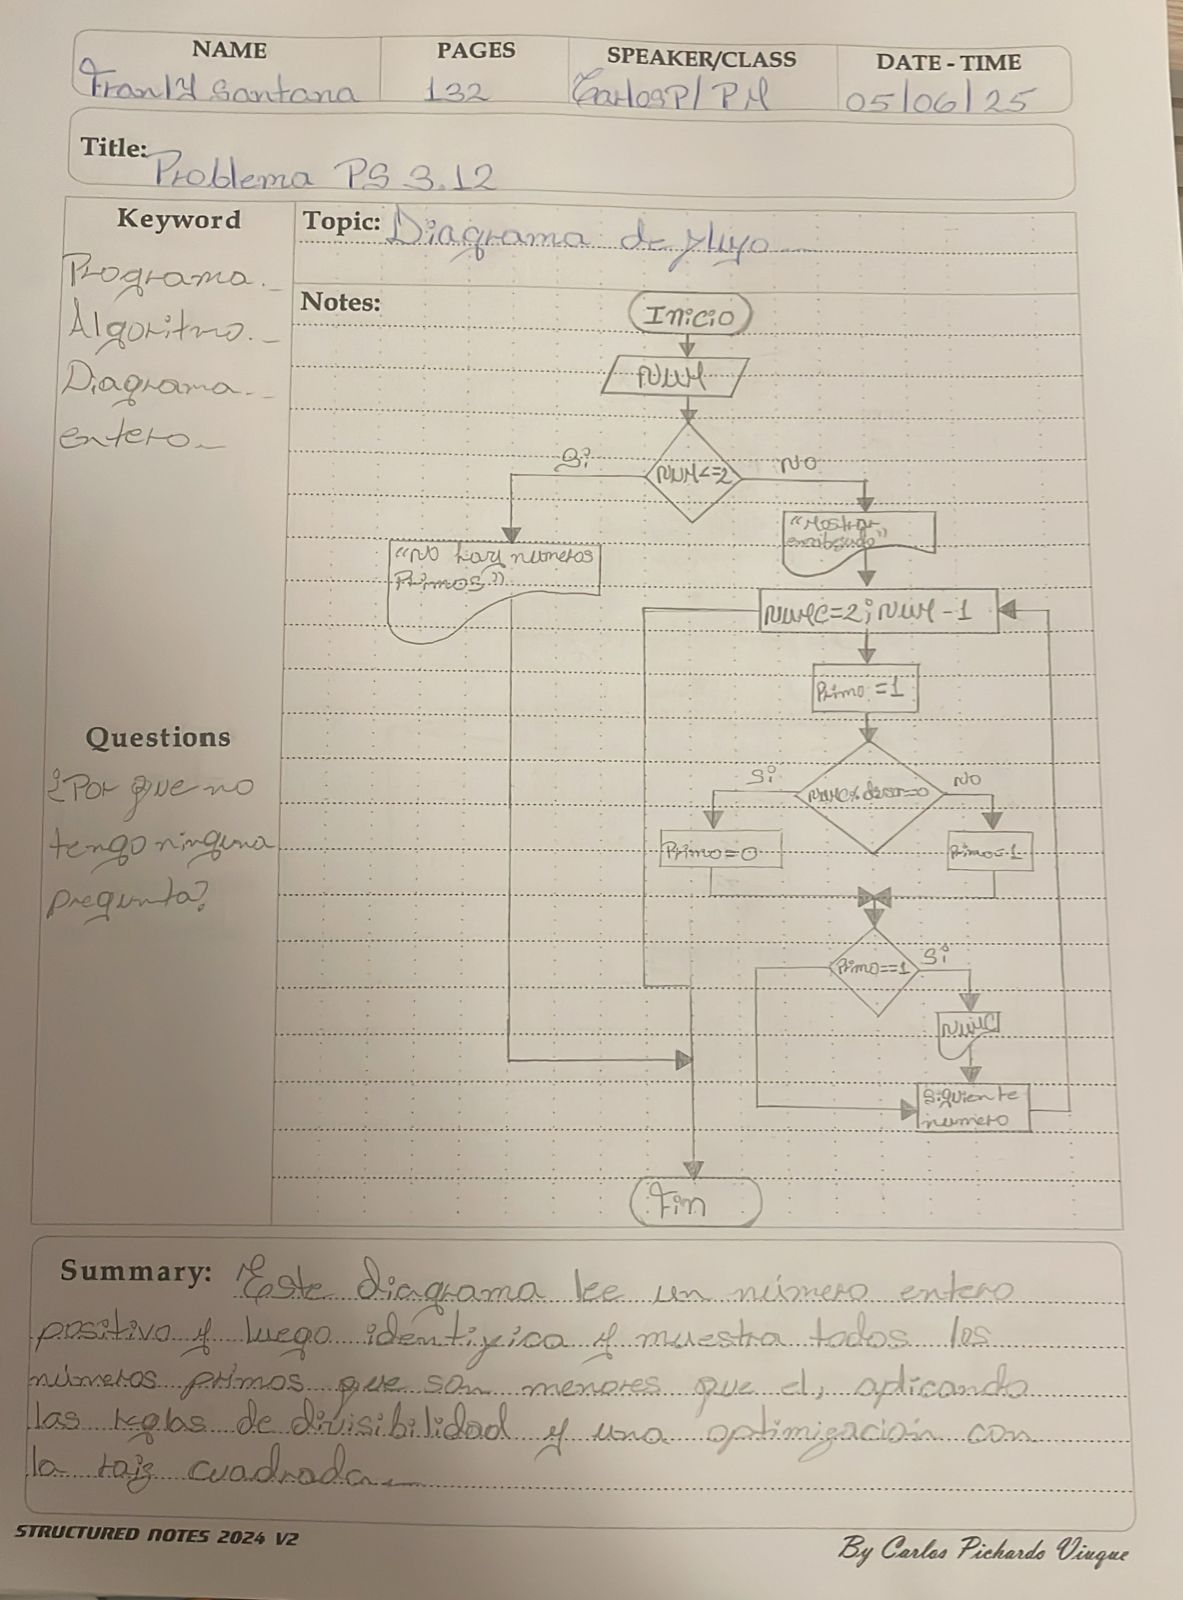 NAME PAGES SPEAKER/CLASS DATE - TIME
Franly Santana 132 CarlosP/PM 05/06/25
Title: Problema PS 3.12
Keyword
Programa.
Algoritmo.
Diagrama.
entero
Topic: Diagrama de flujo
Notes:
Inicio
NUM
NUM<=2
Si
NO
"No hay numeros
Primos"
"Mostrar
NUMC=2; NUM-1
Primo=1
Si
NO
Primo=0
Primo=1
Primo==1
Si
NUMC
Siguiente
numero
Fin
Questions
¿Por que no
tengo ninguna
pregunta?
Summary: Este diagrama lee un número entero
positivo y luego identifica y muestra todos los
números primos que son menores que el, aplicando
las reglas de divisibilidad y una optimización con
la raiz cuadrada
STRUCTURED NOTES 2024 V2
By Carlos Pichardo Viuque